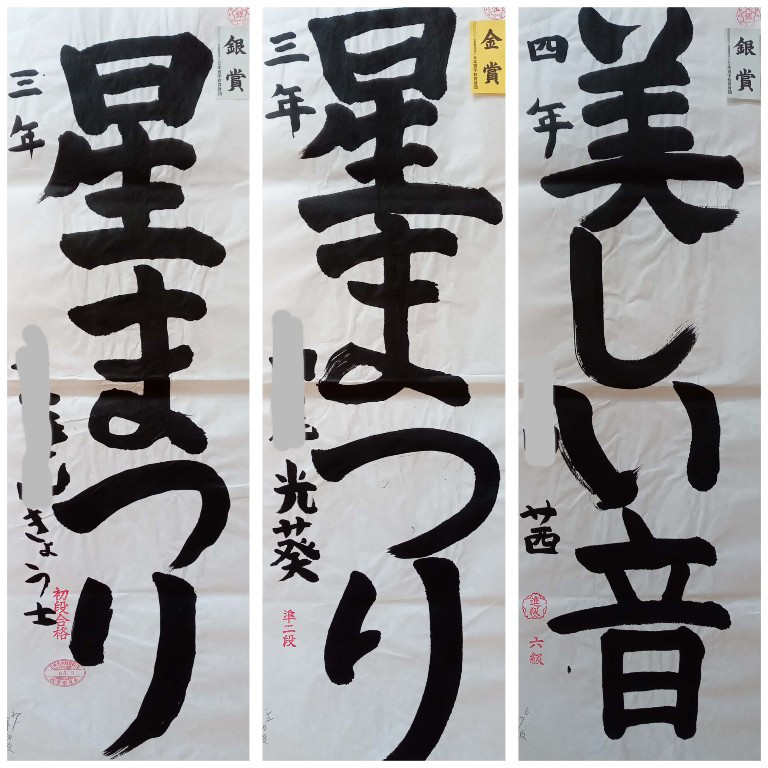 銀賞
星まつり
三年
きょう士
初段合格
金賞
星まつり
三年
光葵
準二段
銀賞
美しい音
四年
茜
進級
六級